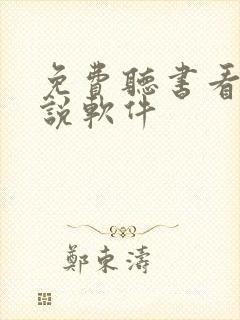 免費聽書看
說軟件
鄭東濤